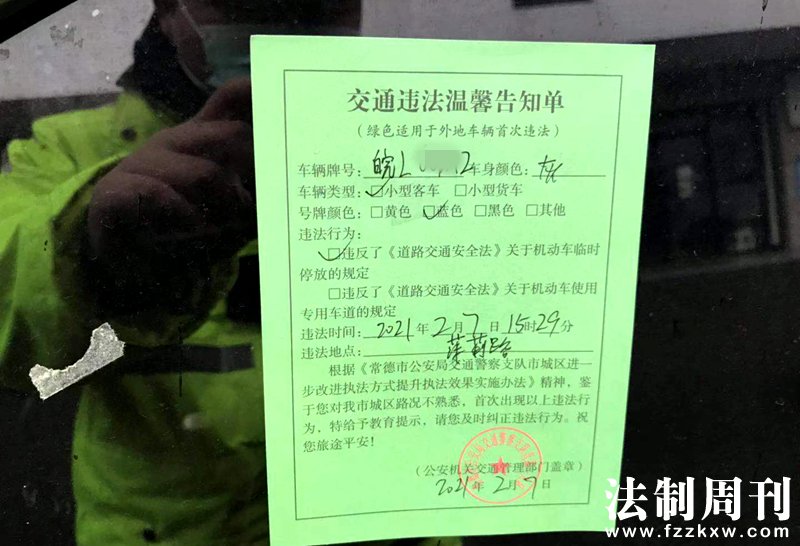 交通违法温馨告知单
（绿色适用于外地车辆首次违法）
车辆牌号：皖L 2 车身颜色：灰
车辆类型：□小型客车 □小型货车
号牌颜色：□黄色 □蓝色 □黑色 □其他
违法行为：
□违反了《道路交通安全法》关于机动车临时
停放的规定
□违反了《道路交通安全法》关于机动车使用
专用车道的规定
违法时间：2021年2月7日15时29分
违法地点：茉莉路
根据《常德市公安局交通警察支队市城区进一
步改进执法方式提升执法效果实施办法》精神，鉴
于您对我市城区路况不熟悉，首次出现以上违法行
为，特给予教育提示，请您及时纠正违法行为。祝
您旅途平安！
（公安机关交通管理部门盖章）
2021年2月7日
法制周刊
www.fzzkxw.com